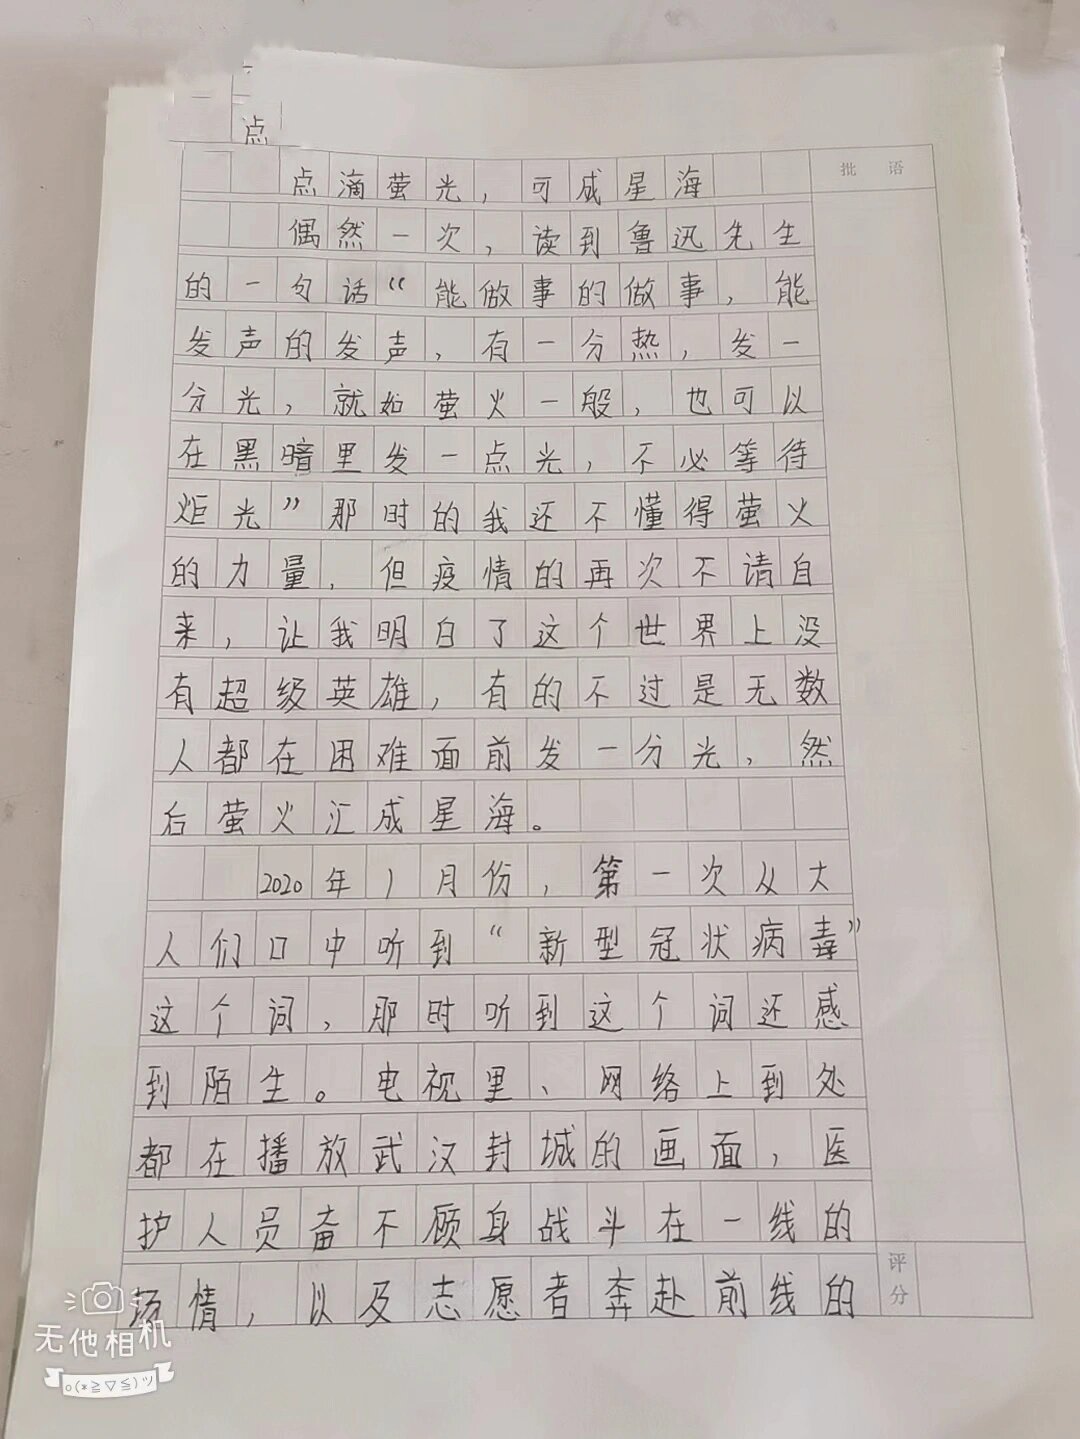 点
批 语
点滴萤光，可成星海
偶然一次，读到鲁迅先生
的一句话“能做事的做事，能
发声的发声，有一分热，发一
分光，就如萤火一般，也可以
在黑暗里发一点光，不必等待
炬光”那时的我还不懂得萤火
的力量，但疫情的再次不请自
来，让我明白了这个世界上没
有超级英雄，有的不过是无数
人都在困难面前发一分光，然
后萤火汇成星海。
2020年1月份，第一次从大
人们口中听到“新型冠状病毒”
这个词，那时听到这个词还感
到陌生。电视里、网络上到处
都在播放武汉封城的画面，医
护人员奋不顾身战斗在一线的
场情，以及志愿者奔赴前线的
评分
无他相机
o(*≧▽≦)ツ